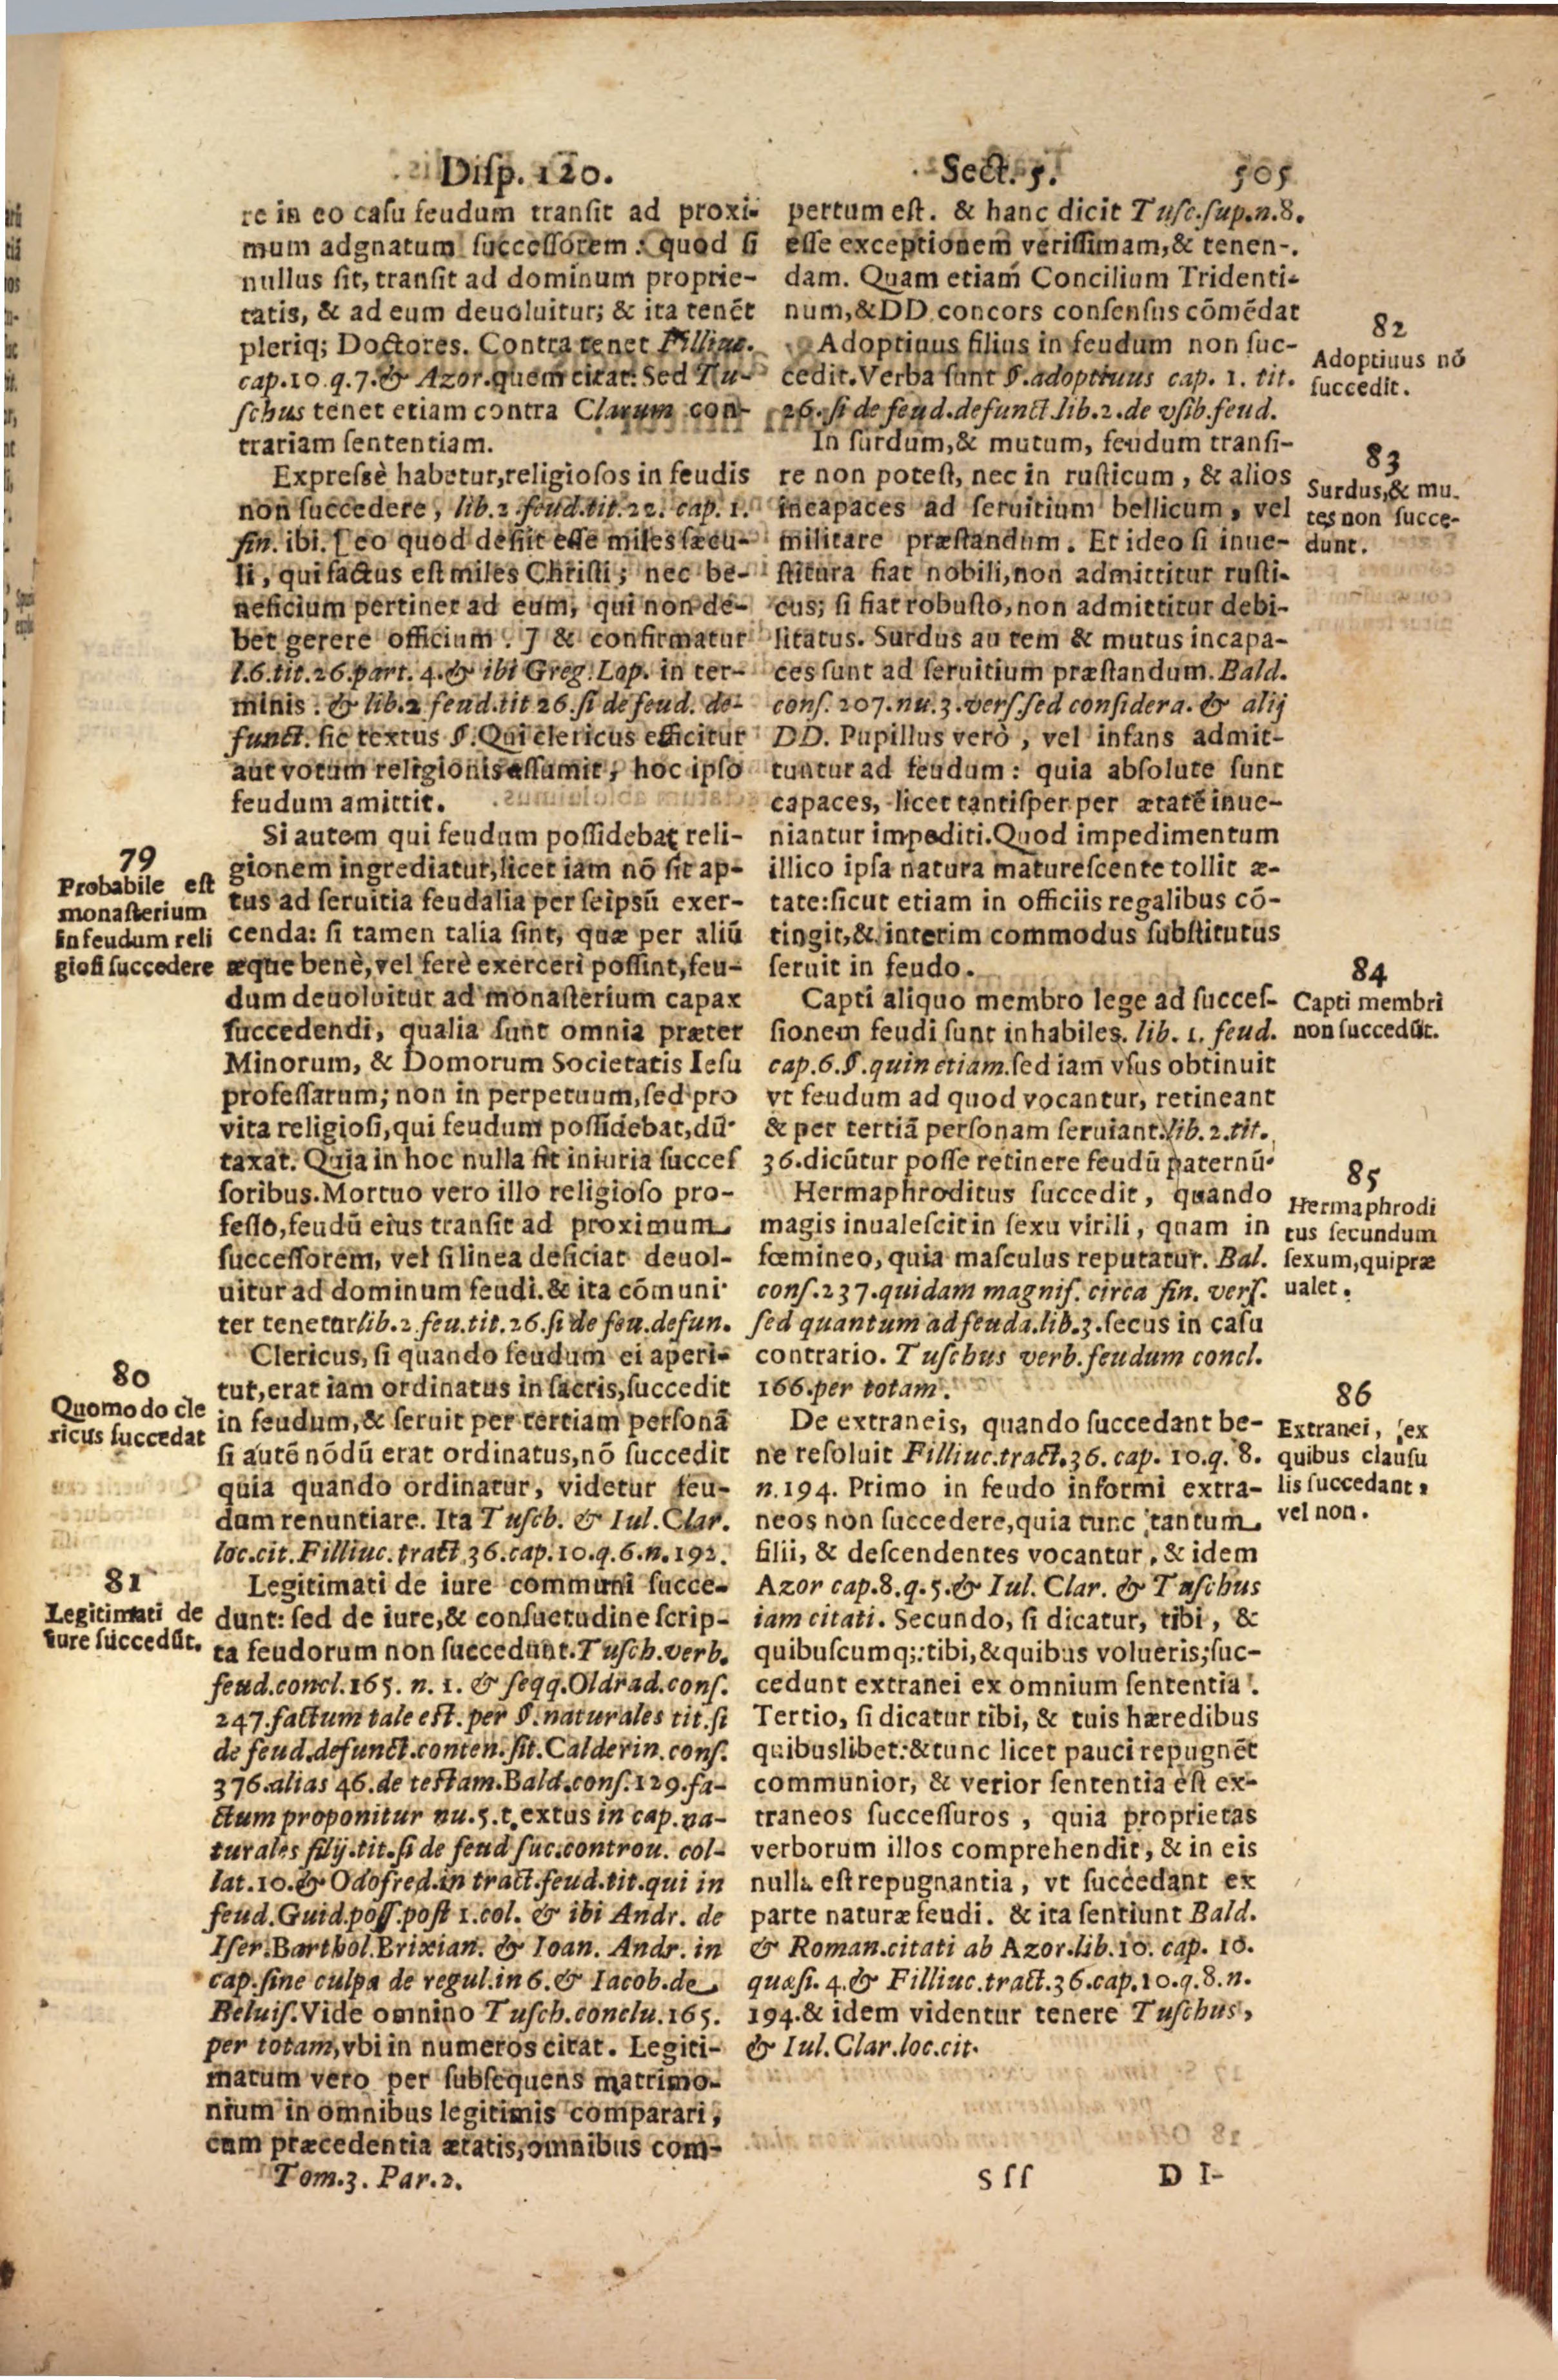 Disp. 120. Sect. 5. 505
re in eo casu feudum transit ad proxi-
mum adgnatum successorem: quod si
nullus sit, transit ad dominum proprie-
tatis, & ad eum deuoluitur; & ita tenẽt
pleriq; Doctores. Contra tenet Filliuc.
cap.10 q.7.& Azor.quem citat: Sed Tu-
schus tenet etiam contra Clarum con-
trariam sententiam.
Expressè habetur,religiosos in feudis
non succedere, lib.2.feud.tit.21. cap. 1.
fin. ibi. [eo quod desiit esse miles sæcu-
li, qui factus est miles Christi; nec be-
neficium pertinet ad eum, qui non de-
bet gerere officium. ] & confirmatur
l.6.tit.26.part. 4.& ibi Greg.Lop. in ter-
minis. & lib.2 feud.tit 26.si de feud. de-
funct. sic textus §.Qui clericus efficitur
aut votum religionis assumit, hoc ipso
feudum amittit.
79
Probabile est
monasterium
in feudum reli
giosi succedere
Si autem qui feudum possidebat reli-
gionem ingrediatur,licet iam nõ sit ap-
tus ad seruitia feudalia per seipsũ exer-
cenda: si tamen talia sint, quæ per aliũ
æque benè,vel ferè exerceri possint,feu-
dum deuoluitur ad monasterium capax
succedendi, qualia sunt omnia præter
Minorum, & Domorum Societatis Iesu
professarum; non in perpetuum,sed pro
vita religiosi,qui feudum possidebat,dũ-
taxat. Quia in hoc nulla fit iniuria succes
soribus.Mortuo vero illo religioso pro-
fesso,feudũ eius transit ad proximum
successorem, vel si linea deficiat deuol-
uitur ad dominum feudi.& ita cõmuni-
ter tenetur lib.2.feu.tit.26.si de feu.defun.
80
Quomodo cle
ricus succedat
Clericus, si quando feudum ei aperi-
tut,erat iam ordinatus in sacris,succedit
in feudum,& seruit per tertiam personã
si autẽ nõdũ erat ordinatus,nõ succedit
quia quando ordinatur, videtur feu-
dum renuntiare. Ita Tusch. & Iul.Clar.
loc.cit.Filliuc.tract.36.cap.10.q.6.n.192.
81
Legitimati de
iure succedũt.
Legitimati de iure communi succe-
dunt: sed de iure,& consuetudine scrip-
ta feudorum non succedunt.Tusch.verb.
feud.concl.165. n. 1. & seqq.Oldrad.cons.
247.factum tale est. per §.naturales tit.si
de feud.defunct.conten.sit.Calderin.cons.
376.alias 46.de testam.Bald.cons.129.fa-
ctum proponitur nu.5.t.extus in cap.na-
turales filij.tit.si de feud suc.controu. col-
lat.10.& Odofred.in tract.feud.tit.qui in
feud.Guid.poss.post 1.col. & ibi Andr. de
Iser.Barthol.Brixian. & Ioan. Andr. in
cap.sine culpa de regul.in 6.& Iacob.de
Beluis.Vide omnino Tusch.conclu.165.
per totam,vbi in numeros citat. Legiti-
matum vero per subsequens matrimo-
nium in omnibus legitimis comparari,
cum præcedentia ætatis,omnibus com-
Tom.3. Par.2.
pertum est. & hanc dicit Tusc.sup.n.8.
esse exceptionem verissimam,& tenen-.
dam. Quam etiam Concilium Tridenti-
num,&DD.concors consensus cõmẽdat
82
Adoptiuus nõ
succedit.
Adoptiuus filius in feudum non suc-
cedit.Verba sunt §.adoptiuus cap. 1. tit.
26. si de feud.defunct.lib.2.de vsib.feud.
83
Surdus,& mu.
tes non succe-
dunt.
In surdum,& mutum, feudum transi-
re non potest, nec in rusticum, & alios
incapaces ad seruitium bellicum, vel
militare præstandum. Et ideo si inue-
stitura fiat nobili,non admittitur rusti-
cus; si fiat robusto,non admittitur debi-
litatus. Surdus au tem & mutus incapa-
ces sunt ad seruitium præstandum.Bald.
cons. 207.nu.3.vers.sed considera. & alij
DD. Pupillus verò, vel infans admit-
tuntur ad feudum: quia absolute sunt
capaces, licet tantisper per ætatẽ inue-
niantur impediti.Quod impedimentum
illico ipsa natura maturescente tollit æ-
tate:sicut etiam in officiis regalibus cõ-
tingit,& interim commodus substitutus
seruit in feudo.
84
Capti membri
non succedũt.
Capti aliquo membro lege ad succes-
sionem feudi sunt inhabiles. lib. 1. feud.
cap.6.§.quin etiam.sed iam vsus obtinuit
vt feudum ad quod vocantur, retineant
& per tertiã personam seruiant.lib.2.tit.
36.dicũtur posse retinere feudũ paternũ.
85
Hermaphrodi
tus secundum
sexum,qui præ
ualet.
Hermaphroditus succedit, quando
magis inualescit in sexu virili, quam in
fœmineo, quia masculus reputatur. Bal.
cons.237.quidam magnis. circa fin. vers.
sed quantum ad feuda.lib.3.secus in casu
contrario. Tuschus verb.feudum concl.
166.per totam.
86
Extranei, ex
quibus clausu
lis succedant,
vel non.
De extraneis, quando succedant be-
ne resoluit Filliuc.tract.36. cap. 10.q. 8.
n.194. Primo in feudo informi extra-
neos non succedere,quia tunc tantum
filii, & descendentes vocantur, & idem
Azor cap.8.q.5.& Iul. Clar. & Tuschus
iam citati. Secundo, si dicatur, tibi, &
quibuscumq;:tibi,&quibus volueris;suc-
cedunt extranei ex omnium sententia.
Tertio, si dicatur tibi, & tuis hæredibus
quibuslibet:&tunc licet pauci repugnẽt
communior, & verior sententia est ex-
traneos successuros, quia proprietas
verborum illos comprehendit, & in eis
nulla est repugnantia, vt succedant ex
parte naturæ feudi. & ita sentiunt Bald.
& Roman.citati ab Azor.lib.10. cap. 10.
quæsi. 4.& Filliuc.tract.36.cap.10.q.8.n.
194.& idem videntur tenere Tuschus,
& Iul.Clar.loc.cit.
Sss DI-